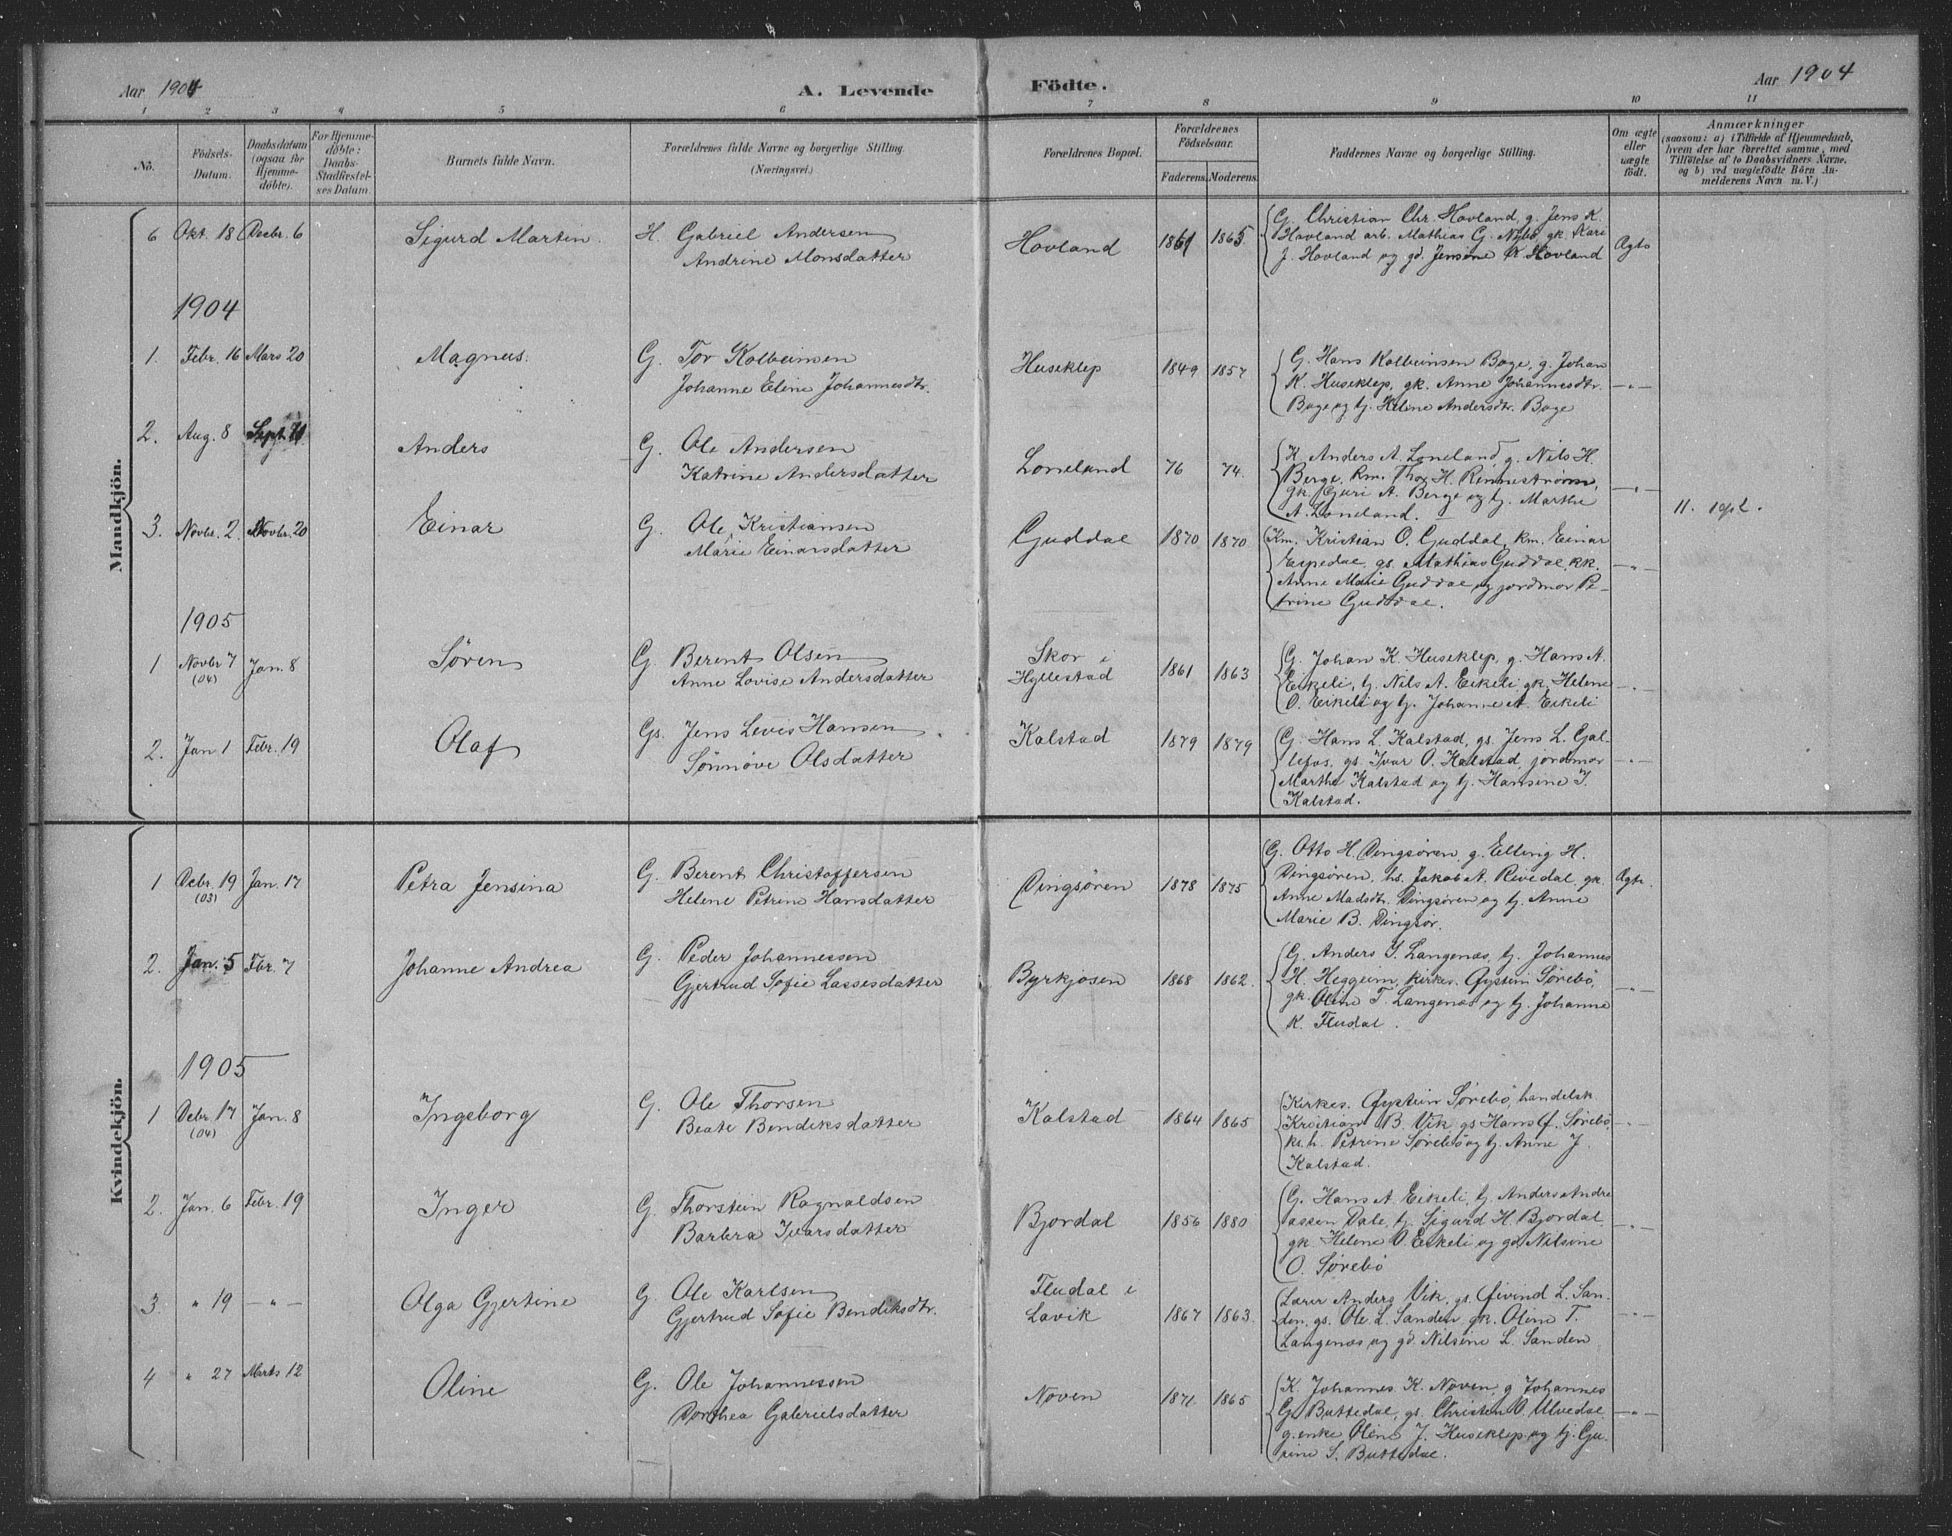 Aar 1904 A. Levende Födte. Aar 1904
1 2 3 4 5 6 7 8 9 10 11
No.
Födsels-Datum.
Daabsdatum (ogsaa for Hjemme-döbte).
For Hjemme-döbte: Daabs-Stadfæstel-ses Datum.
Barnets fulde Navn.
Forældrenes fulde Navne og borgerlige Stilling. (Næringsvei.)
Forældrenes Bopæl.
Forældrenes Födselsaar.
Faderens. Moderens.
Faddernes Navne og borgerlige Stilling.
Om ægte eller uægte födt.
Anmærkninger
(saasom: a) i Tilfælde af Hjemmedaab, hvem der har forrettet samme, med Tilföielse af to Daabsvidners Navne, og b) ved uægtefödte Börn An-melderens Navn m. V.)
Mandkjön.
6 Okt. 18 Decbr. 6 Sigurd Martin. H. Gabriel Andersen
Andrine Monsdatter
Hovland 1861 1865
G. Christian Chr. Hovland, g. Jens K.
Hovland arb. Mathias G. Nybø gk. Kari
J. Hovland og gd. Jensine K. Hovland
Ægte
1904
1. Febr. 16 Mars 20 Magnus. G. Tor Kolbeinsen
Johanne Eline Johannesdtr.
Huseklep 1849 1857
G. Hans Kolbeinsen Bøge, g. Johan
K. Huseklep, gk. Anne Johannesdtr.
Bøge og tj. Helene Andersdtr. Bøge
— " —
2. Aug. 8 Sept. Anders G. Ole Andersen
Katrine Andersdatter
Loneland 76 74.
K. Anders A. Loneland, g. Nils H.
Berge, km. Thor H. Rennestrøm,
gk. Guri A. Berge og tj. Marthe
A. Loneland.
— " —
11.
3. Novbr. 2. Novbr. 20 Einar G. Ole Kristiansen
Marie Einarsdatter
Guddal 1870 1870
Km. Kristian O. Guddal, km. Einar
Espedal, gs. Mathias Guddal, kk.
Anne Marie Guddal og jordmor Pe-
trine Guddal.
— " —
1905
1 Novbr 7 (04) Jan. 8 Søren G. Berent Olsen
Anne Lovise Andersdatter
Skor i
Hyllestad
1861 1863
G. Johan K. Huseklep, g. Hans A.
Eikeli, tj. Nils A. Eikeli gk. Helene
O. Eikeli og tj. Johanne A. Eikeli
— " —
2. Jan 1 Febr. 19 Olaf Gs. Jens Levis Hansen
Sønnøve Olsdatter
Kalstad 1879 1879
G. Hans L. Kalstad, gs. Jens L. Gal-
lefos, gs. Ivar O. Kalstad, jordmor
Marthe Kalstad og tj. Hansine I.
Kalstad.
— " —
Kvindekjön.
1 Decbr. 19 (03) Jan. 17 Petra Jensina G. Berent Christoffersen
Helene Petrine Hansdatter
Dingsören 1878 1875
G. Otto H. Dingsören, g. Elling H.
Dingsören, hs. Jakob A. Rivedal, gk.
Anne Madsdtr. Dingsören og tj. Anne
Marie B. Dingsör.
Ægte.
2. Jan. 5 Febr. 7 Johanne Andrea G. Peder Johannessen
Gjertrud Sofie Lassesdatter
Byrkjosen 1868 1862.
G. Anders I. Langenæs, tj. Johannes
H. Heggeim, kirkes. Øystein Sørebö,
gk. Oline T. Langenæs og tj. Johanne
K. Fludal.
— " —
1905
1 Decbr. 17 (04) Jan. 8 Ingeborg G. Ole Thorsen
Beate Bendiksdatter
Kalstad 1864 1865
Kirkes. Øystein Sørebö, handelsk.
Kristian B. Vik, gs Hans Ø. Sørebö,
Petrine Sørebö og tj. Anne J.
Kalstad.
— " —
2. Jan. 6 Febr. 19 Inger G. Thorstein Ragnaldsen
Barbra Ivarsdatter
Bjordal 1856 1880
G. Hans A. Eikeli, tj. Anders Andre
assen Dale, tj. Sigurd H. Bjordal,
gk. Helene O. Eikeli og gd. Nilsine
O. Sørebö
— " —
3. " 19 — " — Olga Gjertine G. Ole Karlsen
Gjertrud Sofie Bendiksdtr.
Fludal i
Lavik
1867 1863.
Lærer Anders Vik, gs. Øivind L. San-
den, gs. Ole L. Sanden gk. Oline T.
Langenæs og gd. Nilsine L. Sanden
— " —
4 " 27 Marts 12 Oline G. Ole Johannessen
Dorthea Gabrielsdatter
Noven 1871. 1865
K. Johannes K. Noven, g Johannes
G. Buttedal, gs. Christen O. Ulvedal
g. enke Oline J. Huseklep og tj. Gu-
rine S. Buttedal.
— " —